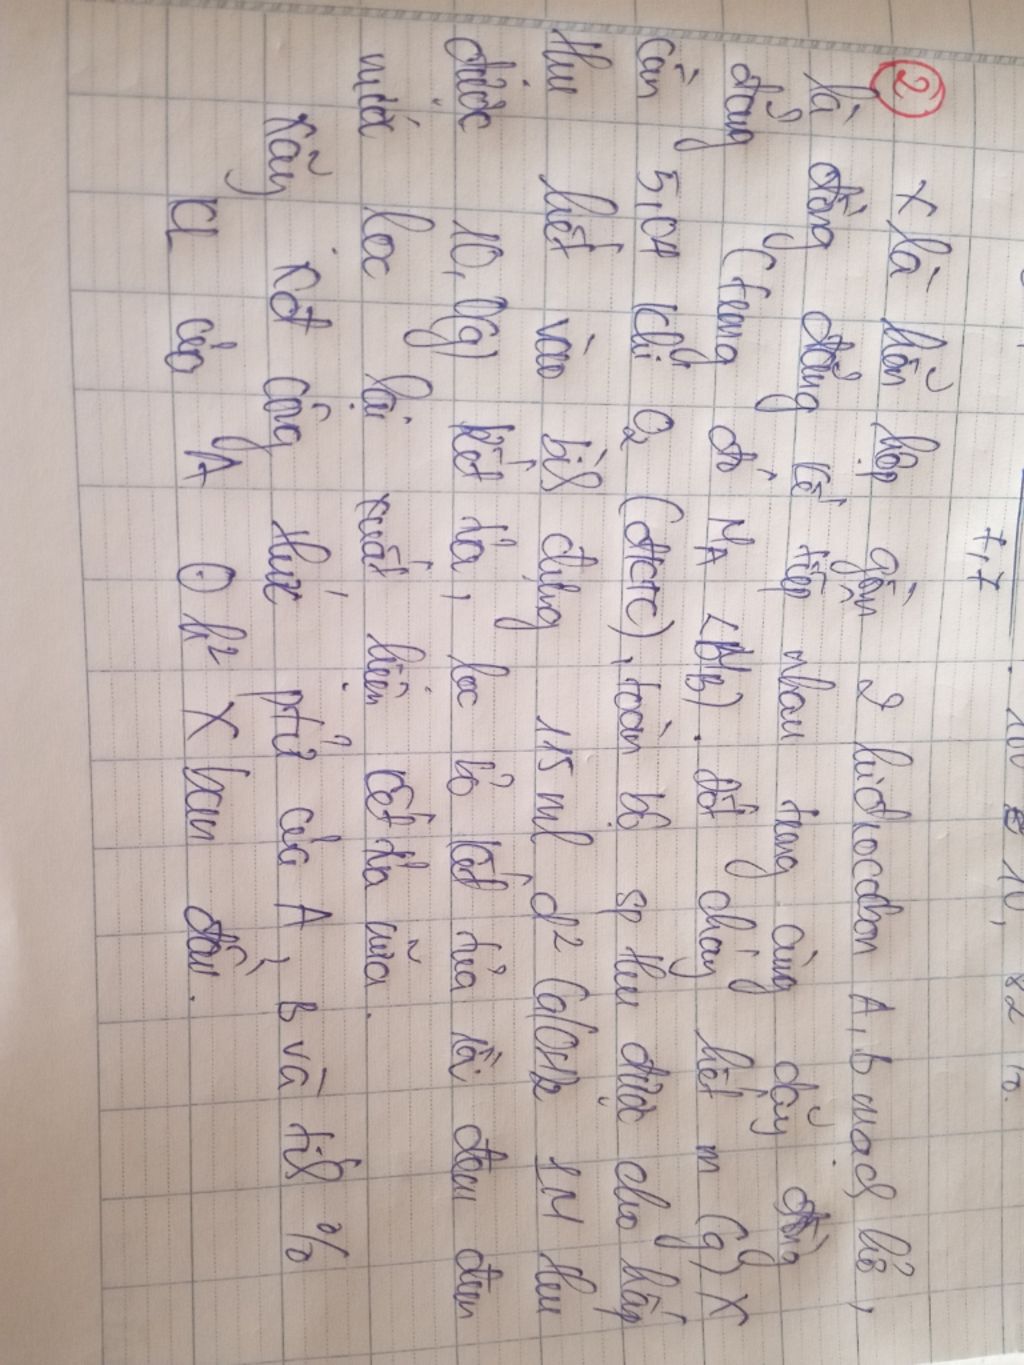 7,7 . 100 = 10, 82 %.
② X là hỗn hợp gồm 2 hiđrocacbon A, B mạch hở,
là đồng đẳng kế tiếp nhau trong cùng dãy đồng
đẳng (trong đó MA < MB). Đốt cháy hết m (g) X
cần 5,04 khí O2 (đktc), toàn bộ sp thu được cho hấp
thụ hết vào bìh đựng 115 ml d² Ca(OH)2 1M thu
được 10,0(g) kết tủa, lọc bỏ kết tủa rồi đem đun
nước lọc lại xuất hiện kết tủa nữa.
Hãy xđ công thức ptử của A, B và tíh %
KL của A ở h² X ban đầu.